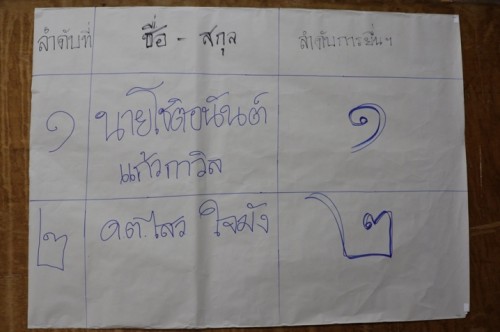 ลำดับที่ ชื่อ - สกุล ลำดับการยื่นฯ
๑ นายโชติอนันต์ ๑
แก้วกาวิล
๒ ดต.ไสว ใจมัง ๒